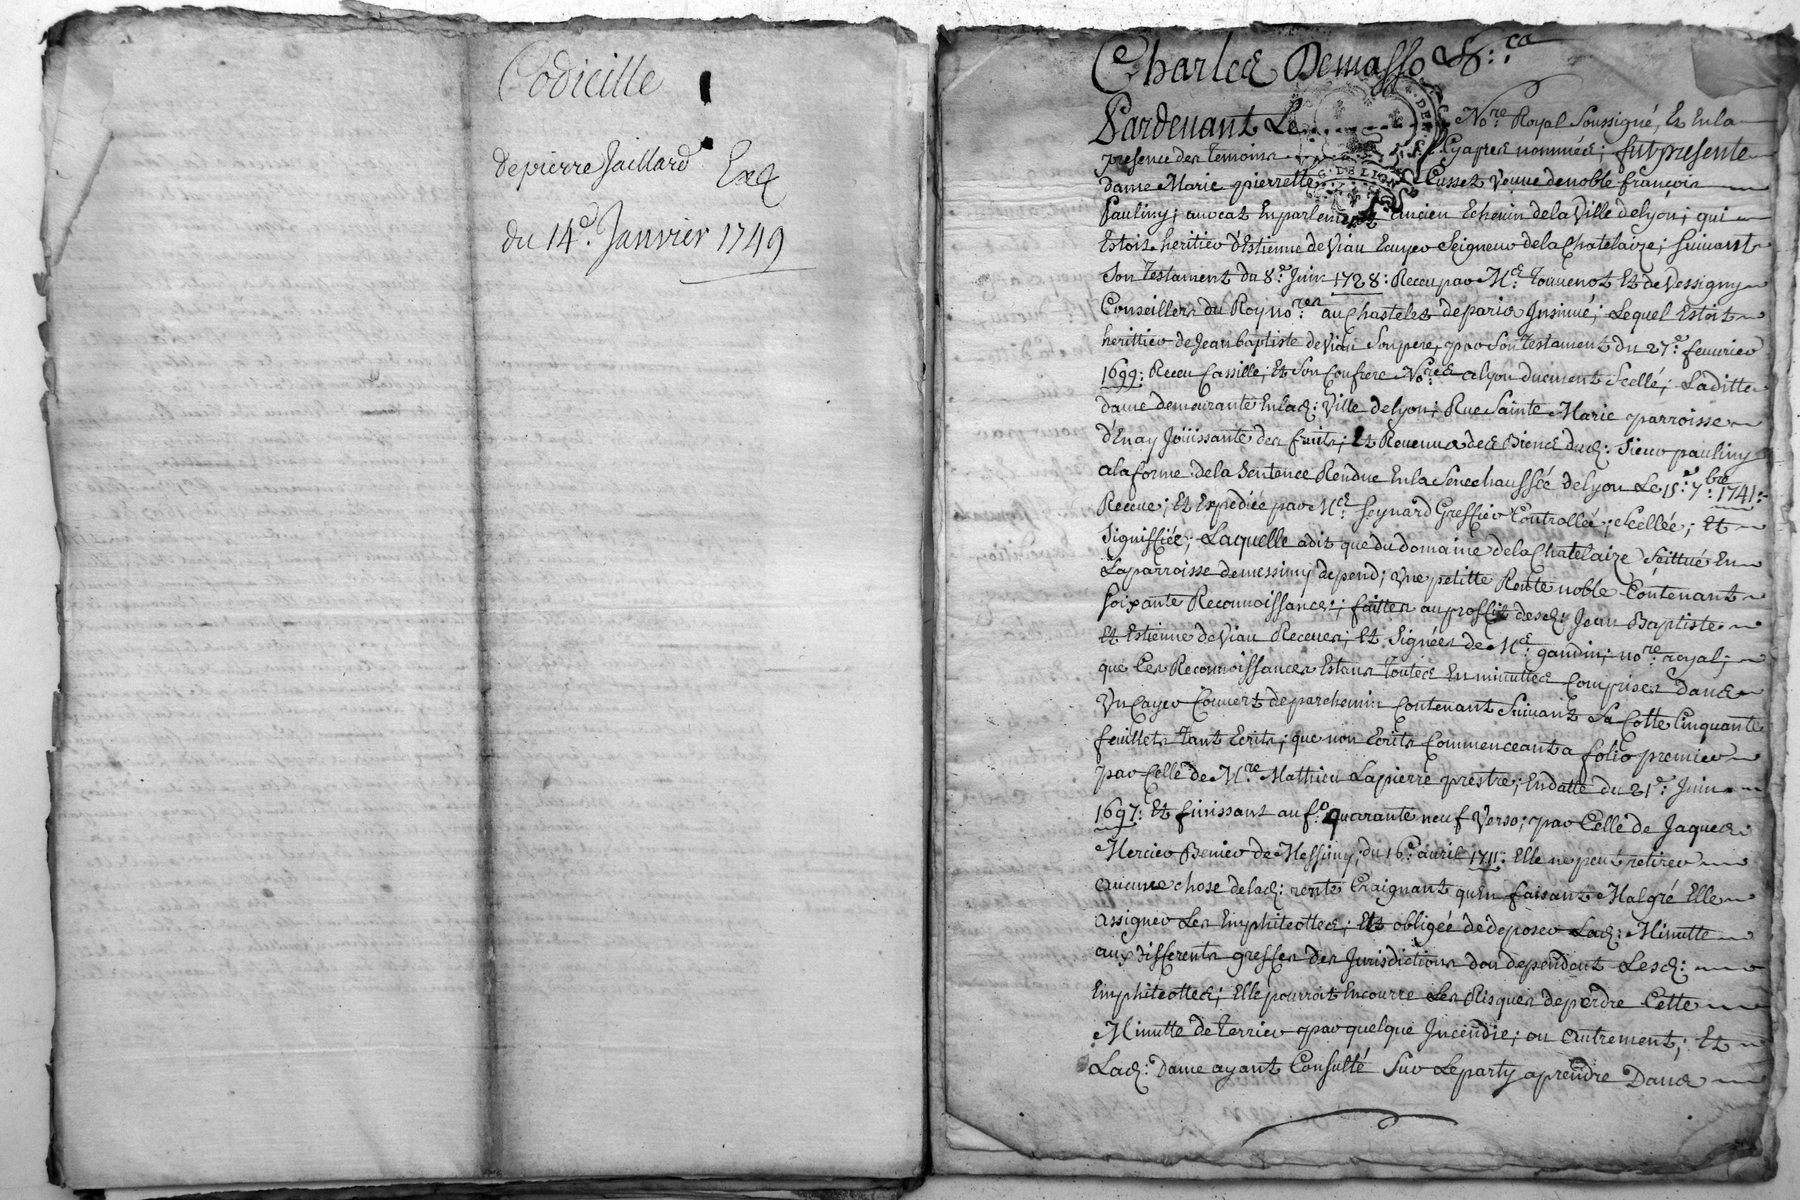 Codicille
de pierre Gaillard Exé
du 14e. Janvier 1749
Charles Demasso &c:ca
Pardevant Le Nore. Royal Soussigné, Et En la
presence des temoins Cy apres nommés; fut presente
dame Marie pierrette Cusset Veuve de noble françois
Pauliny; avocat En parlement ancien Echevin de la Ville de lyon; qui
Estoit heritier d'Estienne de Viau Ecuyer Seigneur de la Chatelaize; Suivant
Son testament du 8e. Juin 1728: Receu par Me. Touvenot Et de Vessigny
Conseillers du Roy nores. au Chastelet de paris Insinué; Lequel Estoit
herittier de Jean baptiste de Viau Son pere, par Son testament du 27e. fevrier
1699: Receu Cassille; Et Son Confrere Nores. a lyon duement Scellé; Laditte
dame demeurante En lad: Ville de lyon; Rue Sainte Marie parroisse
d'Enay Joüissante des fruits; Et Revenus des Biens dud: Sieur pauliny
a la forme de la Sentence Rendue En la Senechaussée de lyon Le 15e. 7bre. 1741:
Receue; Et Expediée par Me. Seynard Greffier Controllée; Scellée; Et
Signiffiée; Laquelle a dit que du domaine de la Chatelaize Scittué En
La parroisse de messimy depend; Une petitte Rente noble Contenant
Soixante Reconnoissances; faittes au proffit desd: Jean Baptiste
Et Estienne de Viau Receues; Et Signées de Me. gandin; nore. royal;
que Ces Reconnoissances Estans toutes En minuttes Comprises dans
Un Cayer Couvert de parchemin Contenant Suivant Sa Cotte Cinquante
feuillets tant Ecrits; que non Ecrits Commenceant a folio premier
par Celle de Mre. Mathieu Lapierre prestre; En datte du 21e. Juin
1697: Et finissant au fo. quarante neuf Verso; par Celle de Jaques
Mercier Benier de Messimy; du 16e. avril 1711: Elle ne peut retirer
aucune chose de lad: rente Craignant qu'En faisant Malgré Elle
assigner Les Emphiteottes; Et obligée de deposer Lad: Minutte
aux differents greffes des Jurisdictions dou dependent Lesd:
Emphiteottes; Elle pourroit Encourre Les Risques de perdre Cette
Minutte de terrier par quelque Incendie; ou autrement; Et
Lad: Dame ayant Consulté Sur Le party a prendre Dans